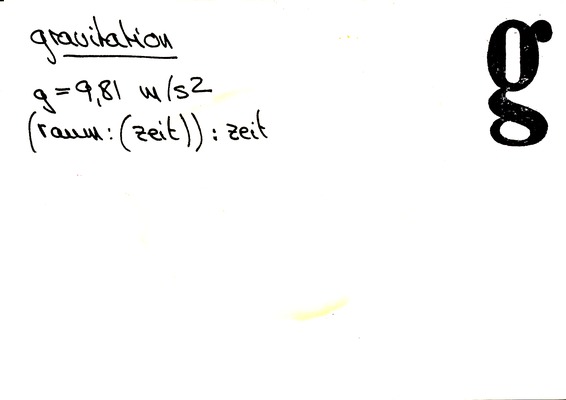 gravitation
g
g = 9,81 m/s2
(raum : (zeit)) : zeit